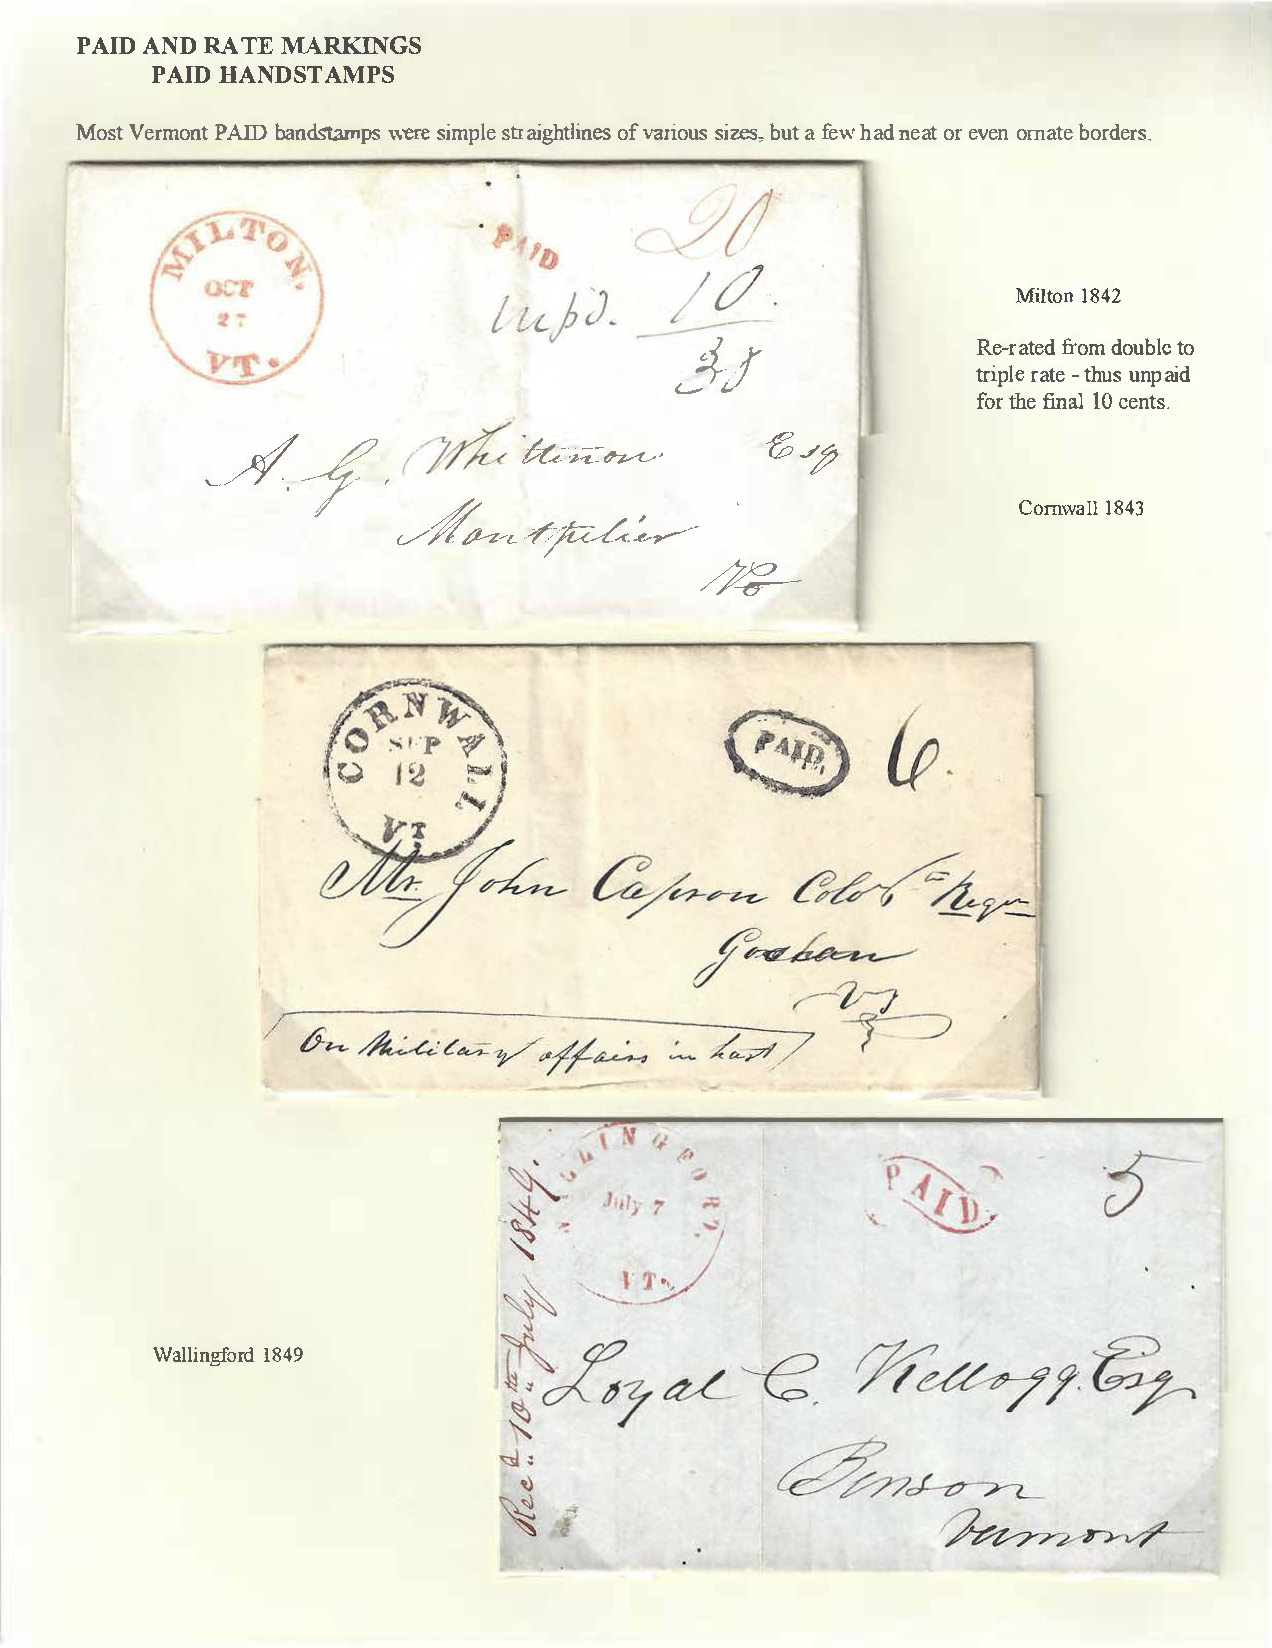 PAID AND RATE MARKINGS
PAID HANDSTAMPS
Most Vermont PAID bandstamps were simple straightlines of various sizes, but a few had neat or even ornate borders.
MILTON.
OCT
27
VT.
PAID
20
unpd. 10.
A. G. Whittemon Esq
Montpelier
Vt
Milton 1842
Re-rated from double to
triple rate - thus unpaid
for the final 10 cents.
Cornwall 1843
CORNWALL
SEP
12
VT
PAID.
6.
Mr. John Capron
Goshan
VT
On Military affairs in hast
WALLINGFORD.
July 7
VT.
PAID.
5
Recd 10th July 1849.
Loyal C. Kellogg. Esq
Benson
Vermont
Wallingford 1849